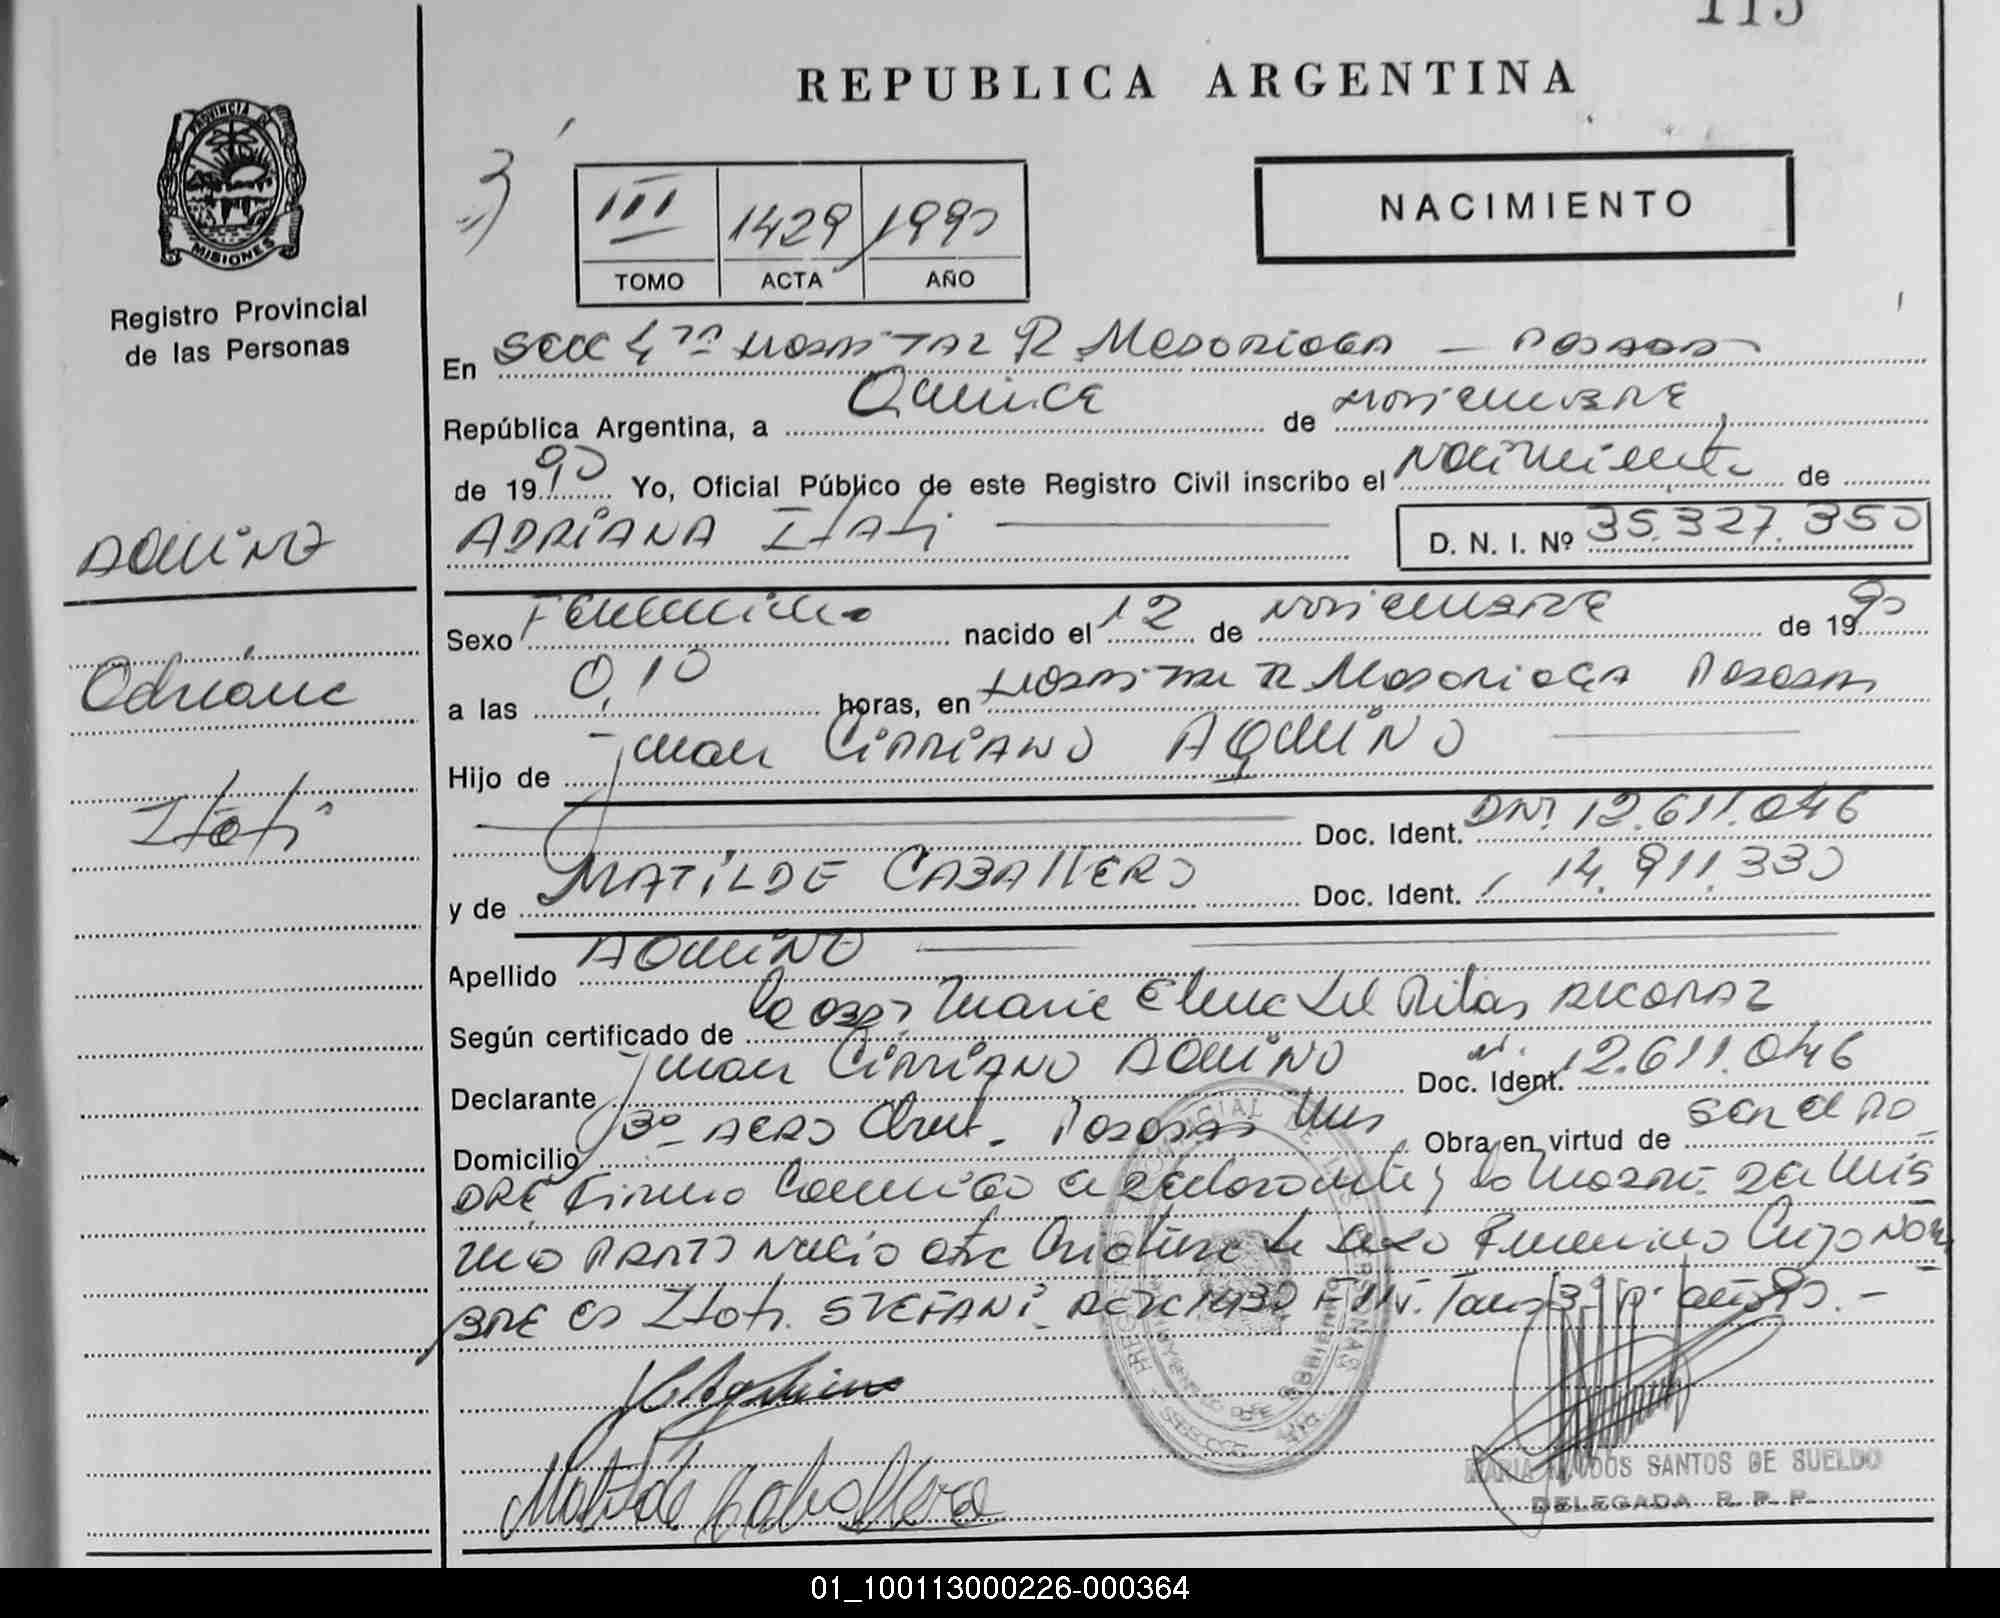 115
REPUBLICA ARGENTINA
PROVINCIA DE
MISIONES
Registro Provincial
de las Personas
NACIMIENTO
III 1429 1990
TOMO ACTA AÑO
En Secc 4ta Hospital R Madariaga — Posadas
República Argentina, a Quince de noviembre
de 1990 Yo, Oficial Público de este Registro Civil inscribo el Nacimiento de
ADRIANA Itatí D. N. I. Nº 35.327.350
AQUINO
Adriana
Itatí
Sexo Femenino nacido el 12 de noviembre de 1990
a las 0,10 horas, en Hospital R Madariaga Posadas
Hijo de Juan Cipriano AQUINO
Doc. Ident. DNI 12.611.046
y de MATILDE CABALLERO Doc. Ident. 14.911.330
Apellido AQUINO
Según certificado de la Obst. Maria Elena del Pilar
Declarante Juan Cipriano AQUINO Doc. Ident. 12.611.046
Domicilio Posadas Mns Obra en virtud de ser el PA
DRE Firma Conmigo el declarante y la Madre. En el mis
mo PARTO Nació otra Criatura de sexo Femenino Cuyo NOM
BRE es Itatí STEFANI. Acta 1430 Tomo 3º año 90.—
Matilde Caballero
MARIA M. DOS SANTOS DE SUELDO
DELEGADA R. P. P.
01_100113000226-000364